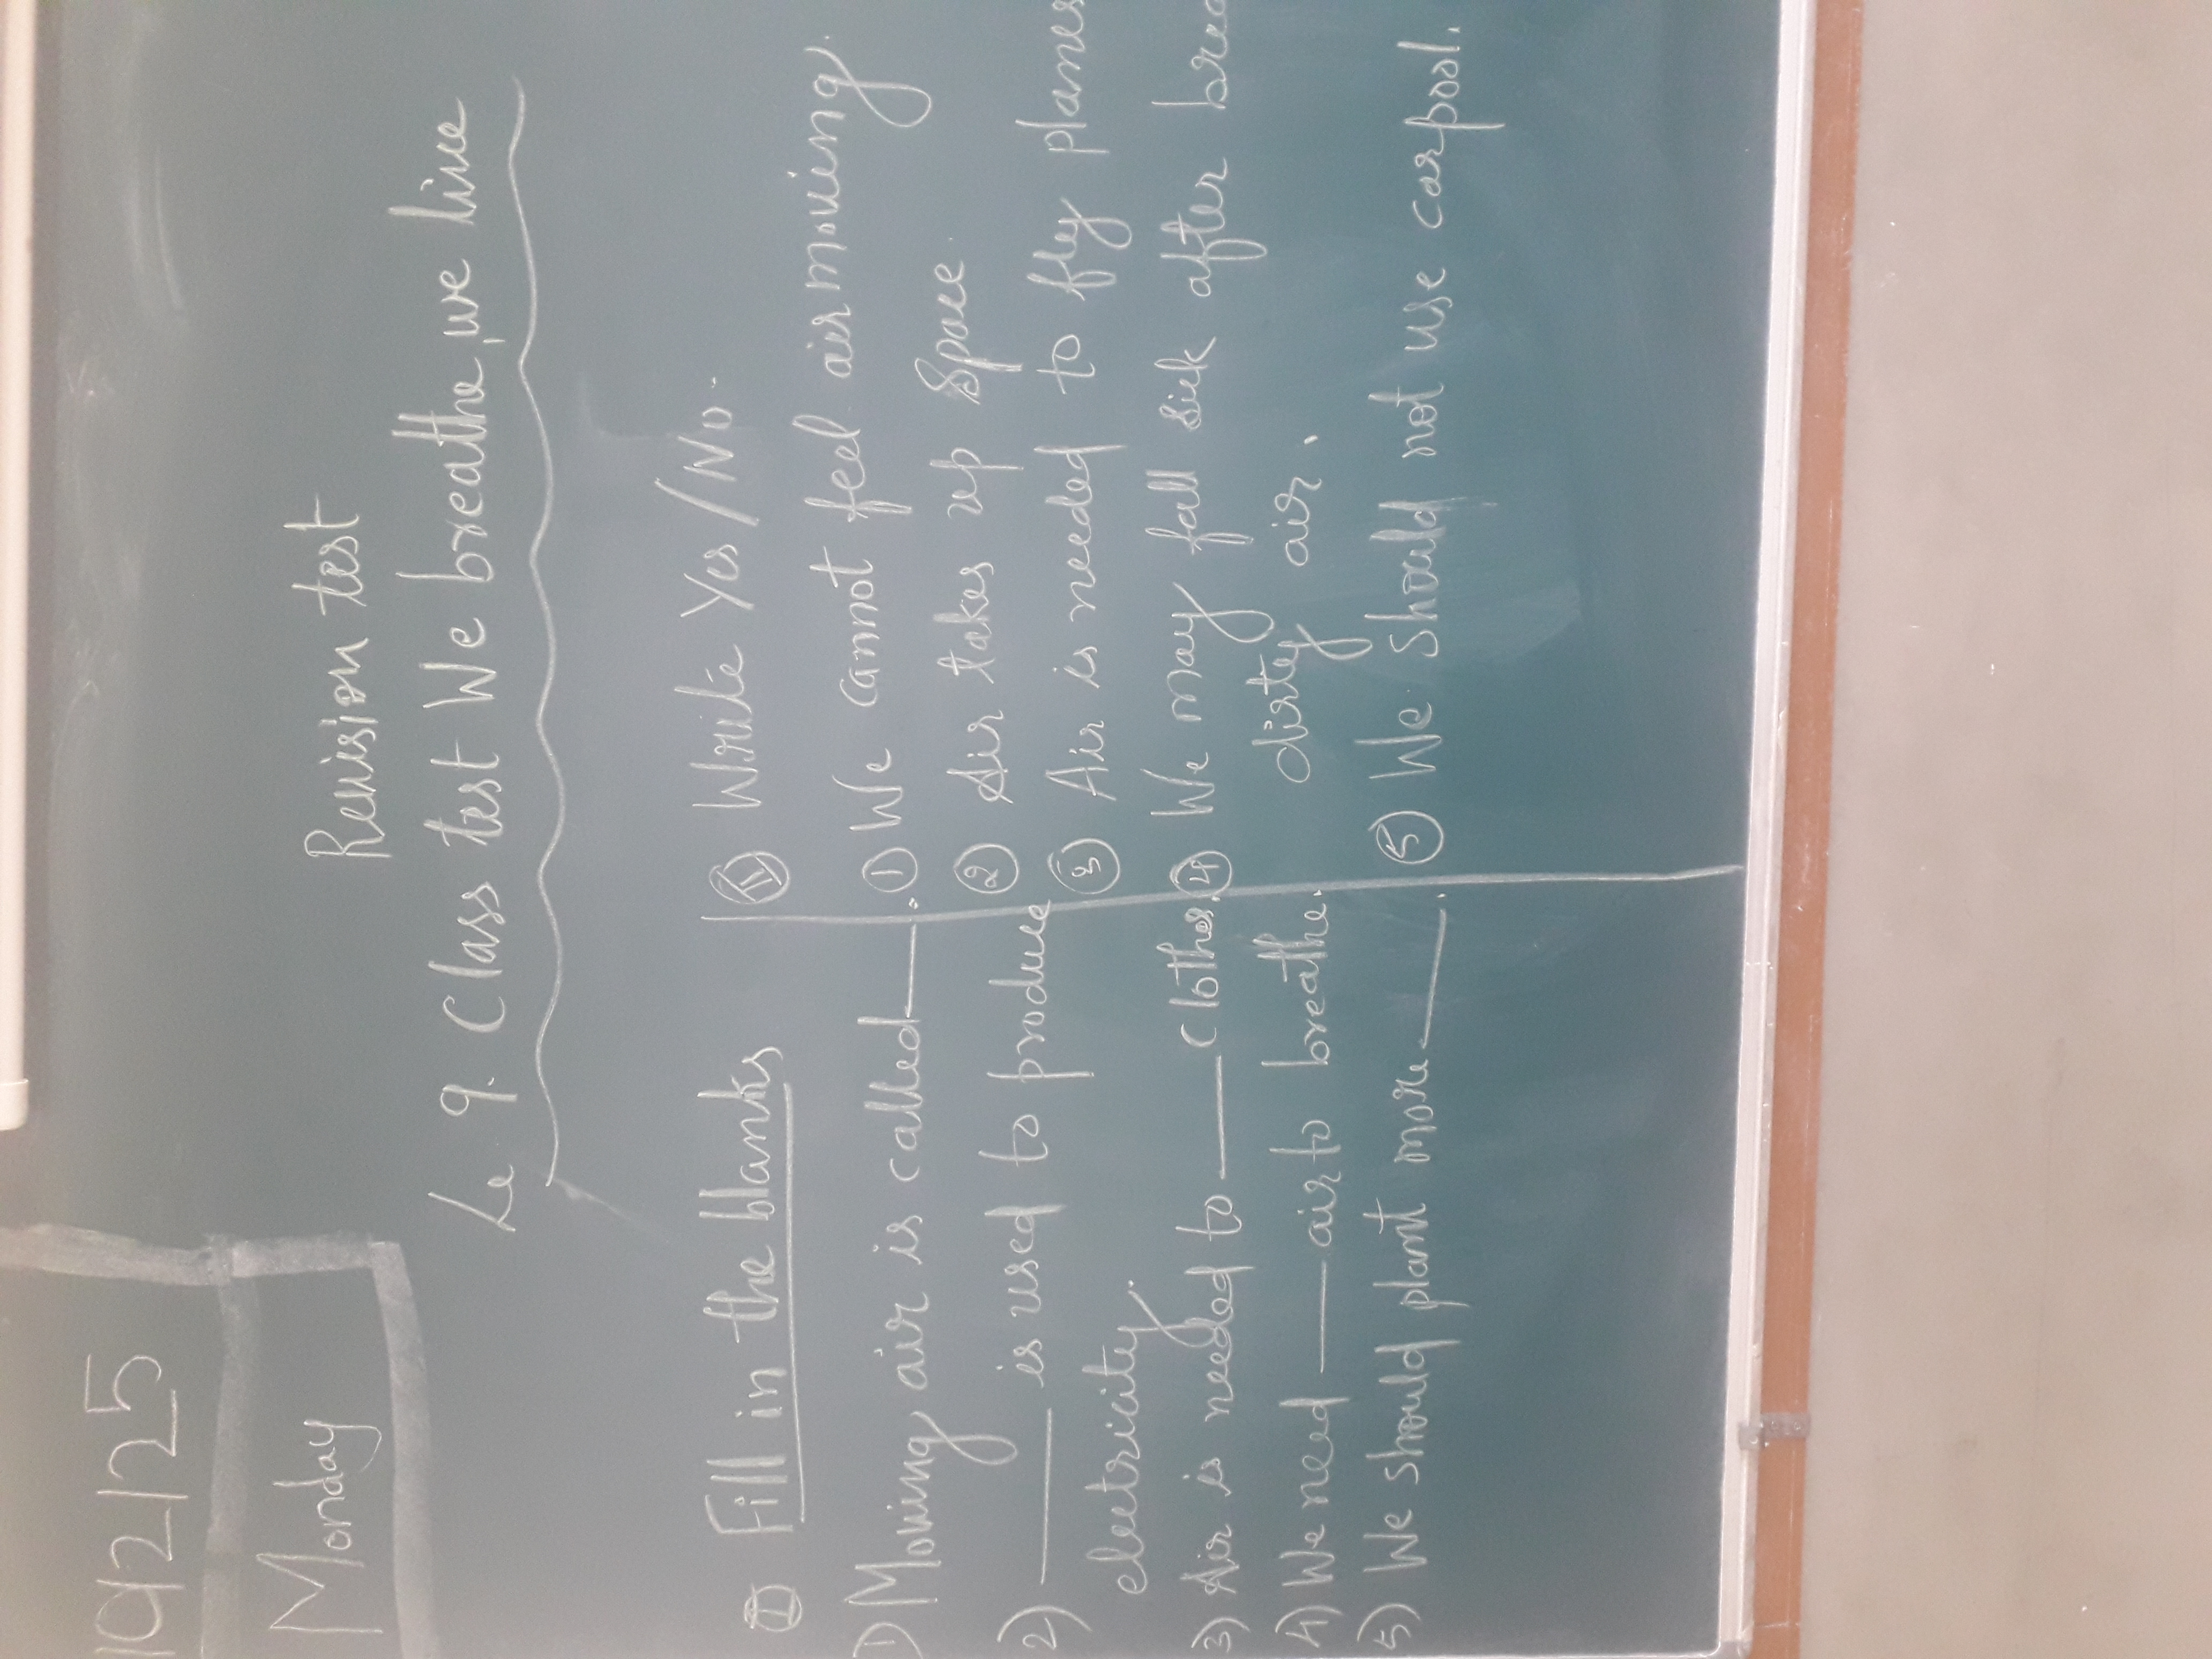 Monday
Revision test
L 9. Class test We breathe, we live
I Fill in the blanks
1) Moving air is called ___.
2) ___ is used to produce
electricity.
3) Air is needed to ___ clothes.
4) We need ___ air to breathe.
5) We should plant more ___.
II Write Yes/No.
1 We cannot feel air moving.
2 Air takes up space.
3 Air is needed to fly planes
4 We may fall sick after
dirty air.
5 We should not use carpool.